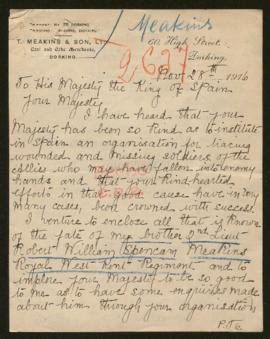 Meakins
T. MEAKINS & SON, LTD
Coal and Coke Merchants,
DORKING.
60 High Street
Dorking.
2627
Nov. 28th, 1916
To His Majesty the King of Spain
Your Majesty
I have heard that your
Majesty has been so kind as to institute
in Spain an organisation for tracing
wounded and missing soldiers of the
allies who may have fallen into enemy
hands and that your kind hearted
efforts in that good cause have in very
many cases, been crowned with success
I venture to enclose all that is known
of the fate of my brother 2nd Lieut
Robert William Spencam Meakins
Royal West Kent Regiment and to
implore your Majesty to be so good
to me as to have some enquiries made
about him through your organisation
P.T.O.